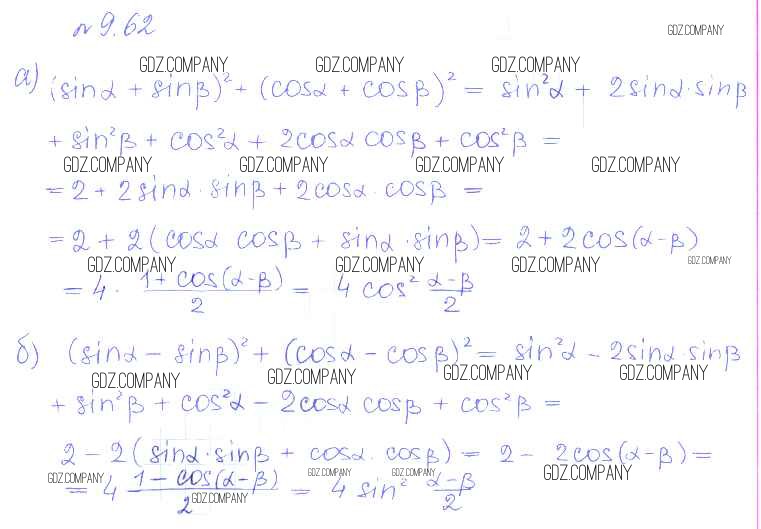 № 9.62
GDZ.COMPANY
GDZ.COMPANY GDZ.COMPANY GDZ.COMPANY
а) (sinα + sinβ)² + (cosα + cosβ)² = sin²α + 2sinα·sinβ
+ sin²β + cos²α + 2cosα cosβ + cos²β =
GDZ.COMPANY GDZ.COMPANY GDZ.COMPANY GDZ.COMPANY
= 2 + 2sinα·sinβ + 2cosα·cosβ =
= 2 + 2(cosα cosβ + sinα·sinβ) = 2 + 2cos(α-β)
GDZ.COMPANY GDZ.COMPANY GDZ.COMPANY GDZ.COMPANY
= 4 · (1 + cos(α-β))/2 = 4 cos² (α-β)/2
б) (sinα - sinβ)² + (cosα - cosβ)² = sin²α - 2sinα·sinβ
GDZ.COMPANY GDZ.COMPANY GDZ.COMPANY GDZ.COMPANY
+ sin²β + cos²α - 2cosα cosβ + cos²β =
2 - 2(sinα·sinβ + cosα·cosβ) = 2 - 2cos(α-β) =
GDZ.COMPANY GDZ.COMPANY GDZ.COMPANY GDZ.COMPANY
= 4 (1 - cos(α-β))/2 = 4 sin² (α-β)/2
GDZ.COMPANY